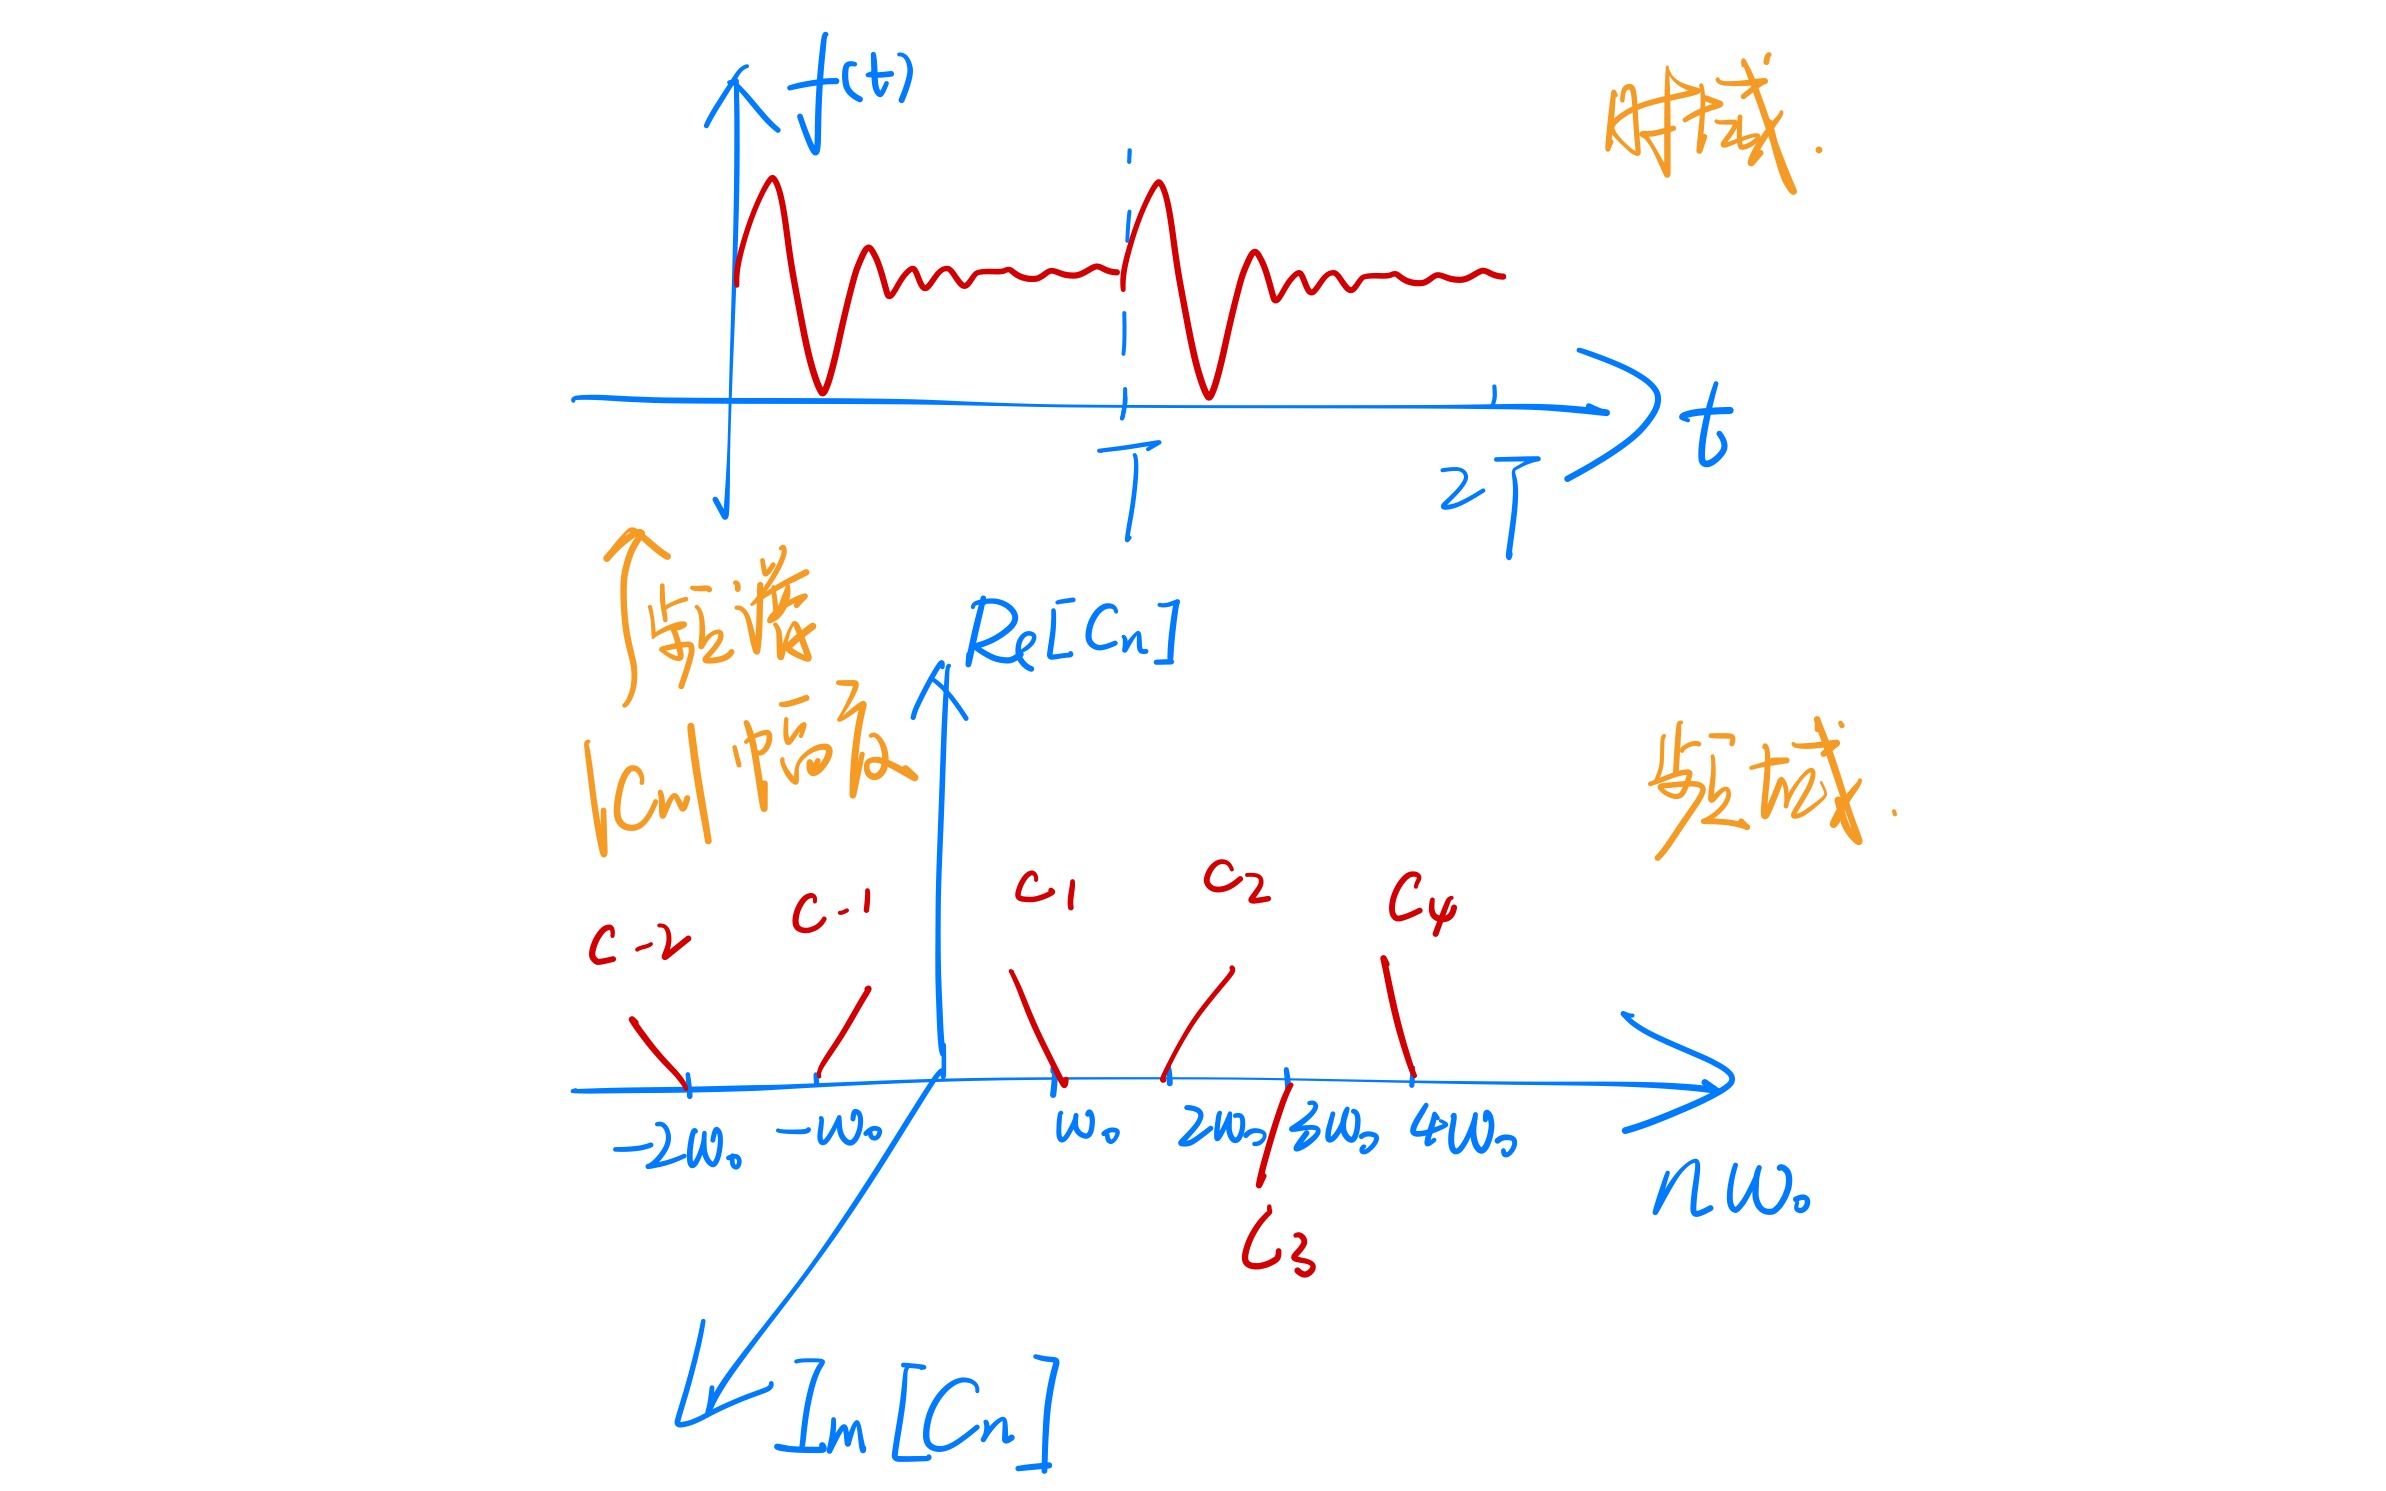 f(t)
时域.
t
T
2T
频谱
Re[Cn]
|Cn| 幅度
频域.
C-2
C-1
C1
C2
C4
-2ω₀
-ω₀
ω₀
2ω₀
3ω₀
4ω₀
nω₀
C3
Im[Cn]